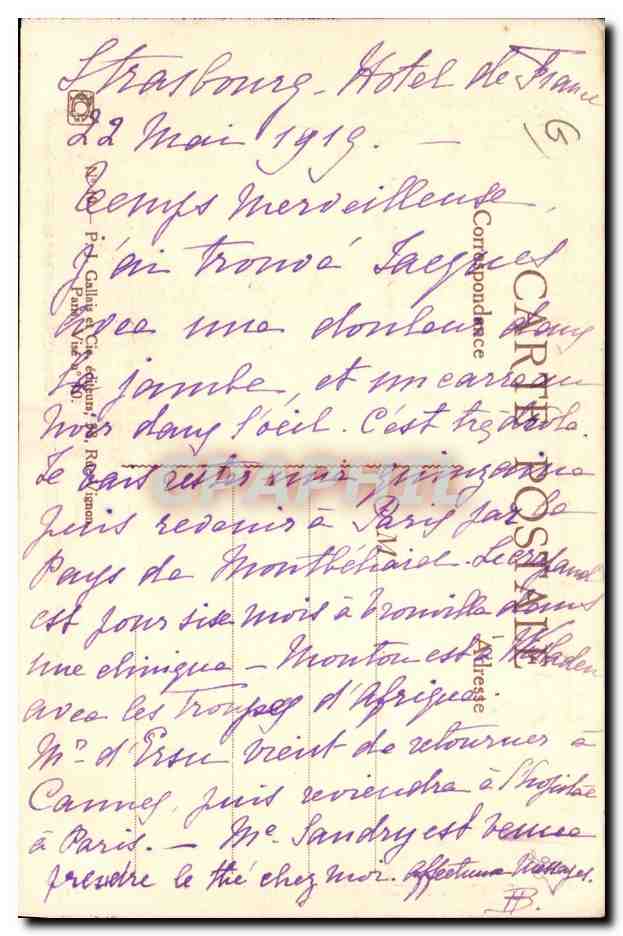 Strasbourg - Hotel de France
22 Mai 1919. —
Temps merveilleuse,
j'ai trouvé Jacques
avec une douleur dans
la jambe, et un carreau
noir dans l'oeil. C'est très drôle.
Je vais rester une quinzaine
puis revenir à Paris par le
Pays de Montbéliard.
est pour six mois à Trouville dans
une clinique — Mouton est à
avec les Troupes d'Afrique.
Mr. d'Ersu vient de retourner à
Cannes, puis reviendra à l'hopital
à Paris. — Me. Sandry est venue
prendre le thé chez moi. affectueux Messages.
HB.
G
CARTE POSTALE
Correspondance
Adresse
M
P. J. Gallais et Cie, éditeurs, 38, Rue Vignon
Paris. Visé n°
CPAPHIL